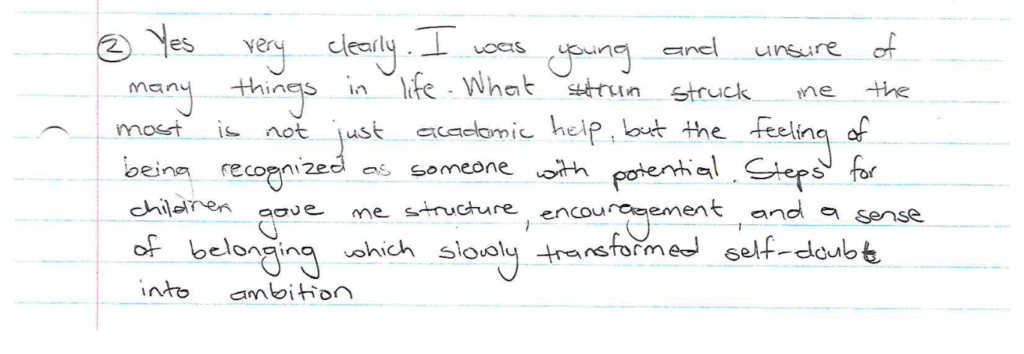 ② Yes very clearly. I was young and unsure of
many things in life. What struck me the
most is not just academic help, but the feeling of
being recognized as someone with potential. Steps for
children gave me structure, encouragement, and a sense
of belonging which slowly transformed self-doubt
into ambition